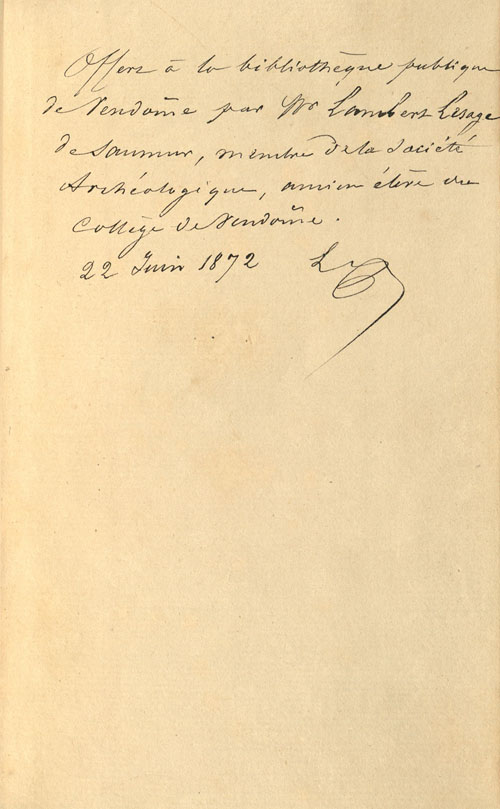 Offert à la bibliothèque publique
de Vendôme par Mr Lambert Lesage
de Saumur, membre de la Société
Archéologique, ancien élève du
Collège de Vendôme.
22 Juin 1872